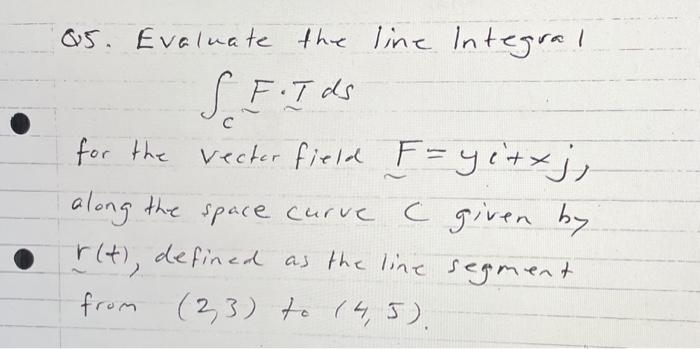 Q5. Evaluate the line Integral
∫_C F·T ds
for the vector field F = yi + xj,
along the space curve C given by
r(t), defined as the line segment
from (2,3) to (4,5).